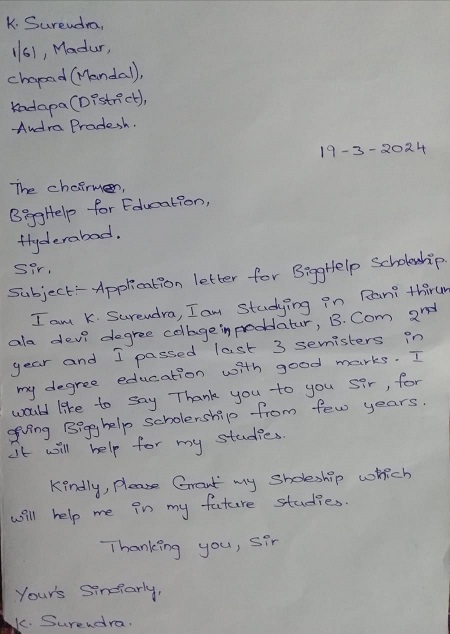 K. Surendra,
1/61, Madur,
chapad (Mandal),
Kadapa (District),
Andra Pradesh.
19-3-2024
The chairmen,
BiggHelp for Education,
Hyderabad.
Sir,
Subject:- Application letter for BiggHelp Scholeship.
I am K. Surendra, I am Studying in Rani thirum
ala devi degree collage in proddatur, B.Com 2nd
year and I passed last 3 semisters in
my degree education with good marks. I
would like to say Thank you to you sir, for
giving Bigghelp scholership from few years.
It will help for my studies.
Kindly, Please Grant my Sholeship which
will help me in my future studies.
Thanking you, Sir
Your's Sinciarly,
K. Surendra.